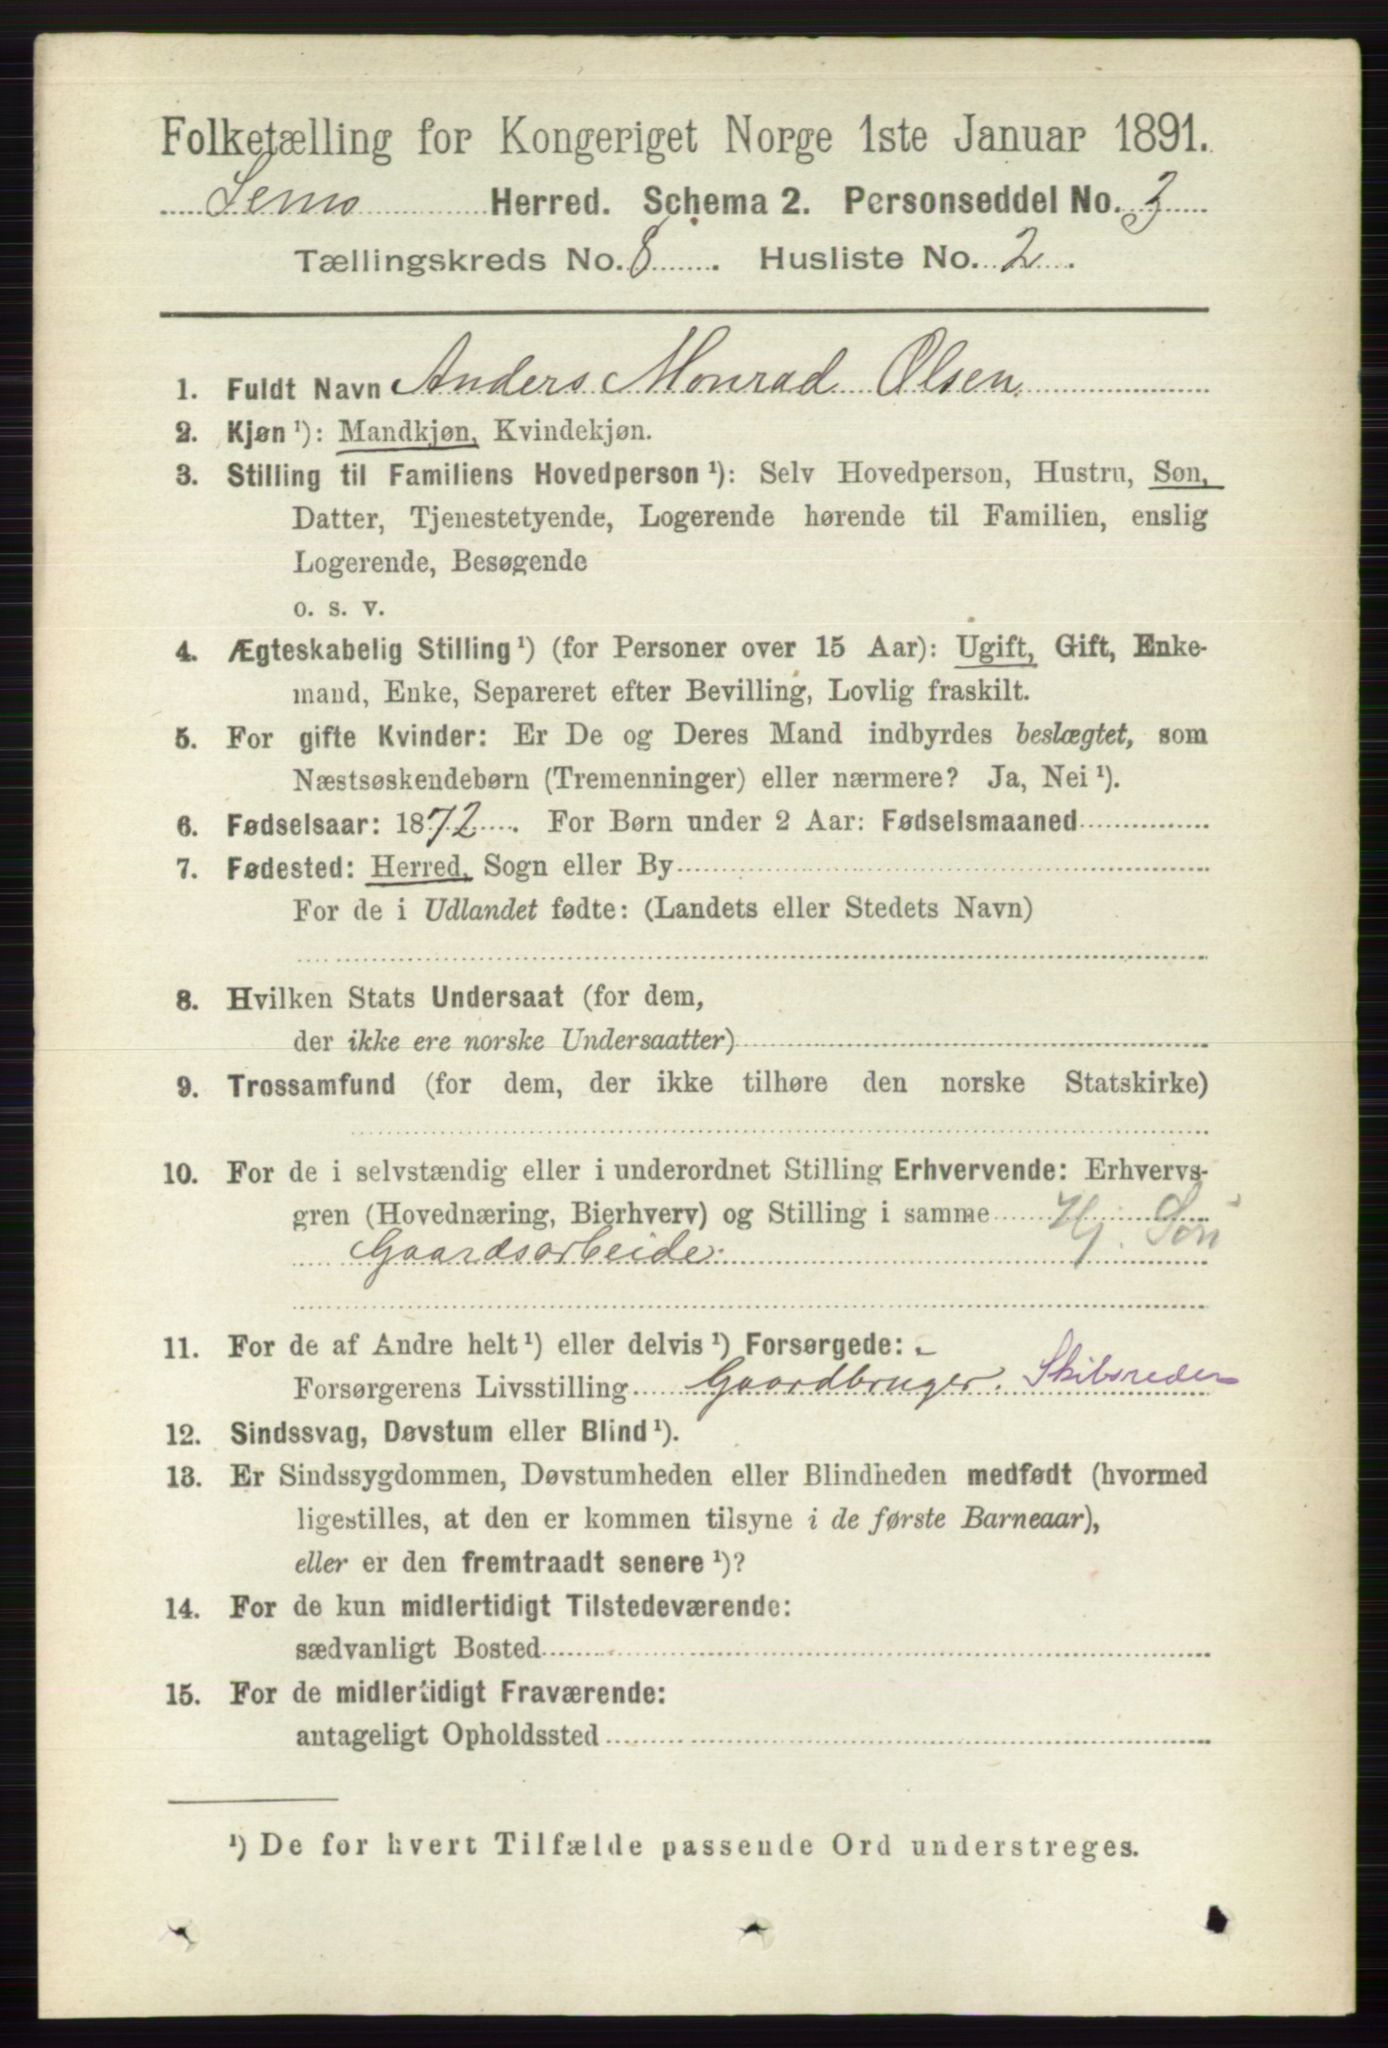 Folketælling for Kongeriget Norge 1ste Januar 1891.
Sems Herred. Schema 2. Personseddel No. 3
Tællingskreds No. 8. Husliste No. 2.
1. Fuldt Navn Anders Monrad Olsen.
2. Kjøn¹): Mandkjøn, Kvindekjøn.
3. Stilling til Familiens Hovedperson¹): Selv Hovedperson, Hustru, Søn,
Datter, Tjenestetyende, Logerende hørende til Familien, enslig
Logerende, Besøgende
o. s. v.
4. Ægteskabelig Stilling¹) (for Personer over 15 Aar): Ugift, Gift, Enke-
mand, Enke, Separeret efter Bevilling, Lovlig fraskilt.
5. For gifte Kvinder: Er De og Deres Mand indbyrdes beslægtet, som
Næstsøskendebørn (Tremenninger) eller nærmere? Ja, Nei¹).
6. Fødselsaar: 1872. For Børn under 2 Aar: Fødselsmaaned
7. Fødested: Herred, Sogn eller By
For de i Udlandet fødte: (Landets eller Stedets Navn)
8. Hvilken Stats Undersaat (for dem,
der ikke ere norske Undersaatter)
9. Trossamfund (for dem, der ikke tilhøre den norske Statskirke)
10. For de i selvstændig eller i underordnet Stilling Erhvervende: Erhvervs-
gren (Hovednæring, Bierhverv) og Stilling i samme Hj. Søn
Gaardsarbeide.
11. For de af Andre helt¹) eller delvis¹) Forsørgede:
Forsørgerens Livsstilling Gaardbruger. Skibsreder
12. Sindssvag, Døvstum eller Blind¹).
13. Er Sindssygdommen, Døvstumheden eller Blindheden medfødt (hvormed
ligestilles, at den er kommen tilsyne i de første Barneaar),
eller er den fremtraadt senere¹)?
14. For de kun midlertidigt Tilstedeværende:
sædvanligt Bosted
15. For de midlertidigt Fraværende:
antageligt Opholdssted
¹) De for hvert Tilfælde passende Ord understreges.